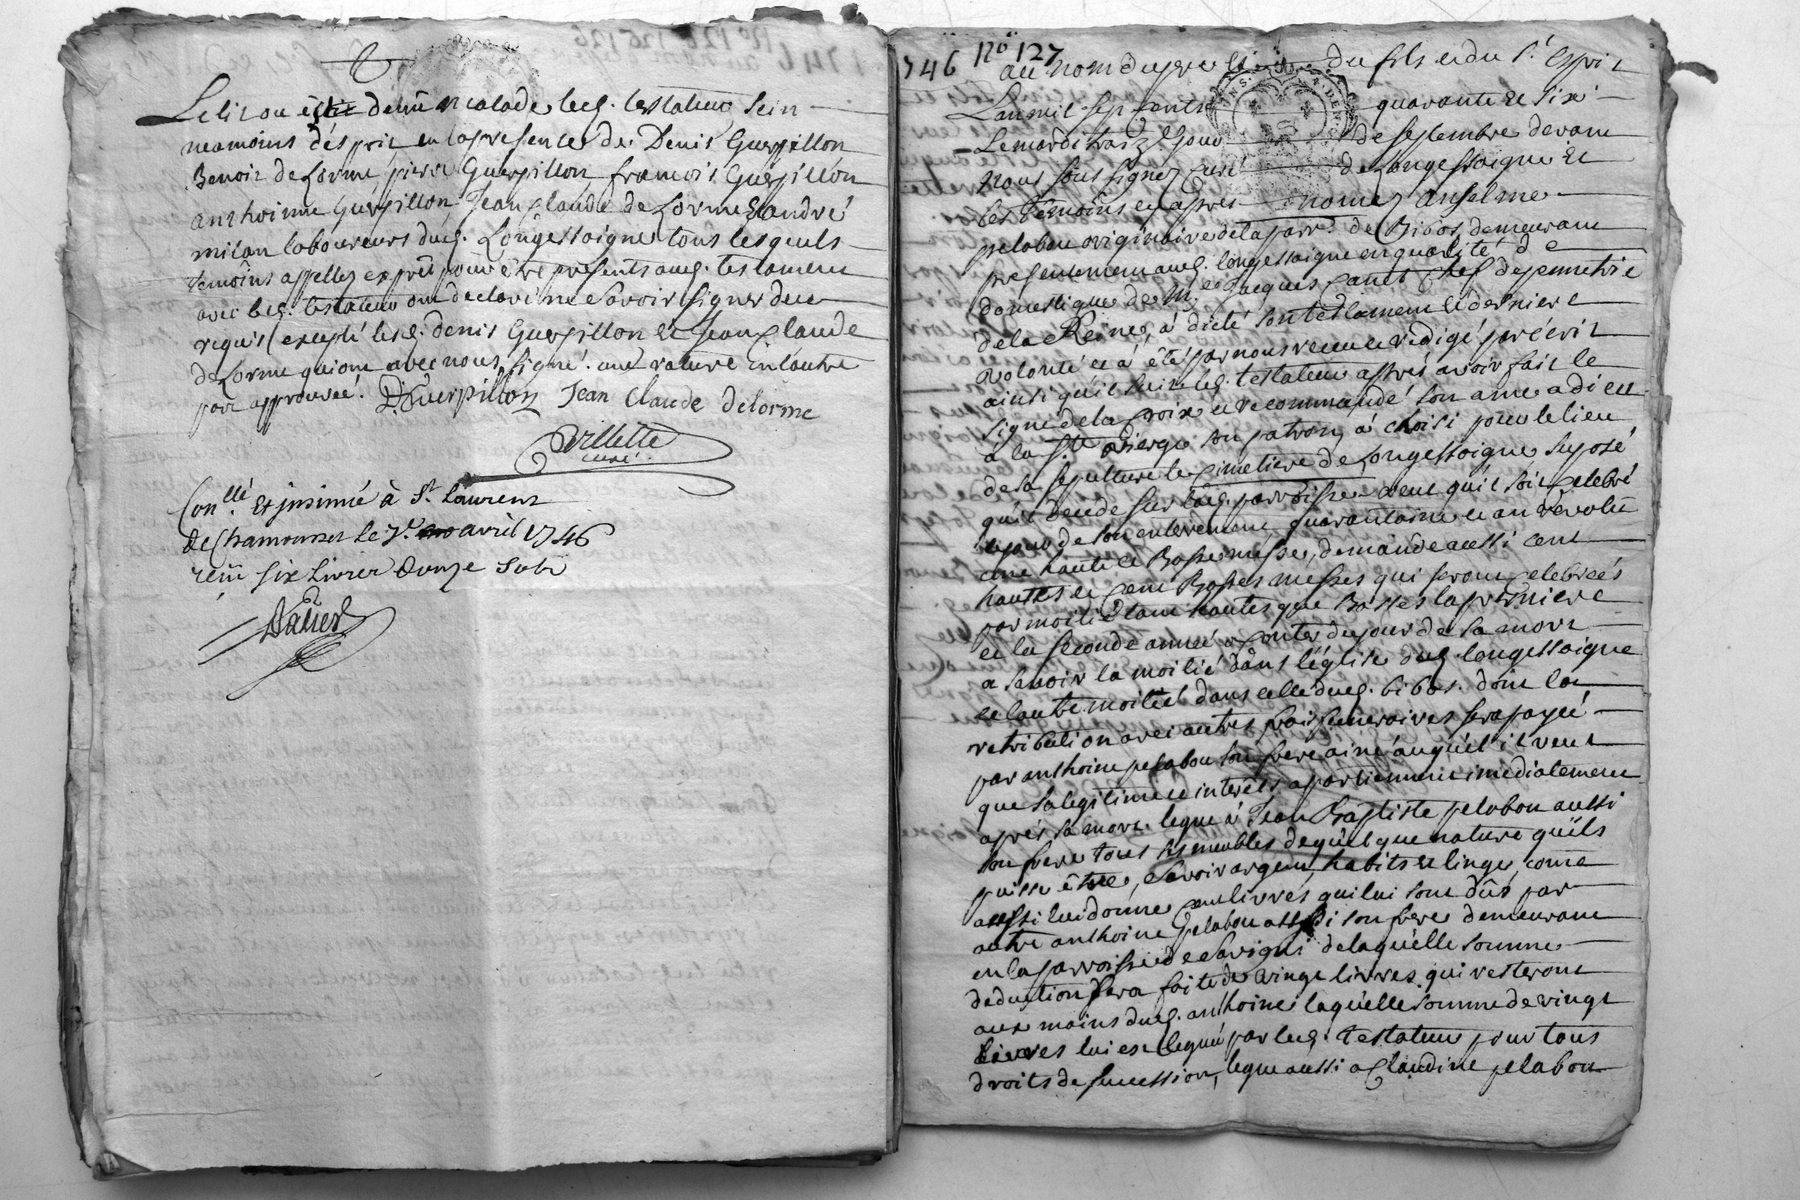 Le lit ou etoit detenu malade led. testateur sein
neamoins d'esprit en la presence de Denis Guerpillon
Benoit delorme pierre Guerpillon francois Guerpillon
anthoinne Guerpillon Jean Claude delorme & andré
milan laboureurs dud. Longessaigne tous lesquels
temoins appellez exprès pour être presents aud. testament
avec led. testateur ont declaré ne savoir signer de ce
requis (excepté lesd. denis Guerpillon et Jean Claude
delorme qui ont avec nous signé. une rature en l'autre
part approuvée. D. Guerpillon Jean Claude delorme
Villette
curé.
Conllé. Et jnsinué à St. Laurent
de Chamousset le 7e. avril 1746
reçu six livres douze sols
1746 No 127
au nom du pere du fils et du St. Esprit
L'an mil sept cents quarante et six
Le mardi traize jour de septembre devant
nous sous signez curé de Longessaigne et
les témoins cy après nomez anselme
pelabou originaire de la parr. de Bibos demeurant
presentement aud. longessaigne en qualité de
domestique de Mr. Jacques Canet chef de panetrie
de la Reine, à dicté son testament et derniere
volonté et à été par nous receu et redigé par écrit
ainsi qu'il suit led. testateur après avoir fait le
signe de la croix et recommandé son ame a dieu
a la Ste. vierge son patron, à choisi pour le lieu
de sa sepulture le Cimetiere de Longessaigne suposé
qu'il decede sur lad. parroisse veut qu'il soit celebré
le jour de son enterrement quarantaine et an revolu
une haute et Basse messe, demande aussi cent
hautes et cent Basses messes qui seront celebreés
par moitié tant hautes que Basses la premiere
et la seconde anneé a conter du jour de sa mort
a savoir la moitié dans l'église dud. longessaigne
et l'autre moitieé dans celle dud. bibos. dont la
retribution avec autres frais funeraires sera payeé
par anthoine pelabou son frere ainé auquel il veut
que sa legitime et interêts apartiennent imediatement
après sa mort. legue à Jean Baptiste pelabou aussi
son frere tous ses meubles de quelque nature qu'ils
puisse être, savoir argent, habits et linge, come
aussi lui donne cent livres, qui lui sont dûs par
autre anthoine pelabou aussi son frere demeurant
en la parroisse de Savigni de laquelle somme
deduction sera faite de vingt livres qui resteront
aux mains dud. anthoine laquelle somme de vingt
livres lui est legueé par led. testateur pour tous
droits de succession, legue aussi a Claudine pelabou